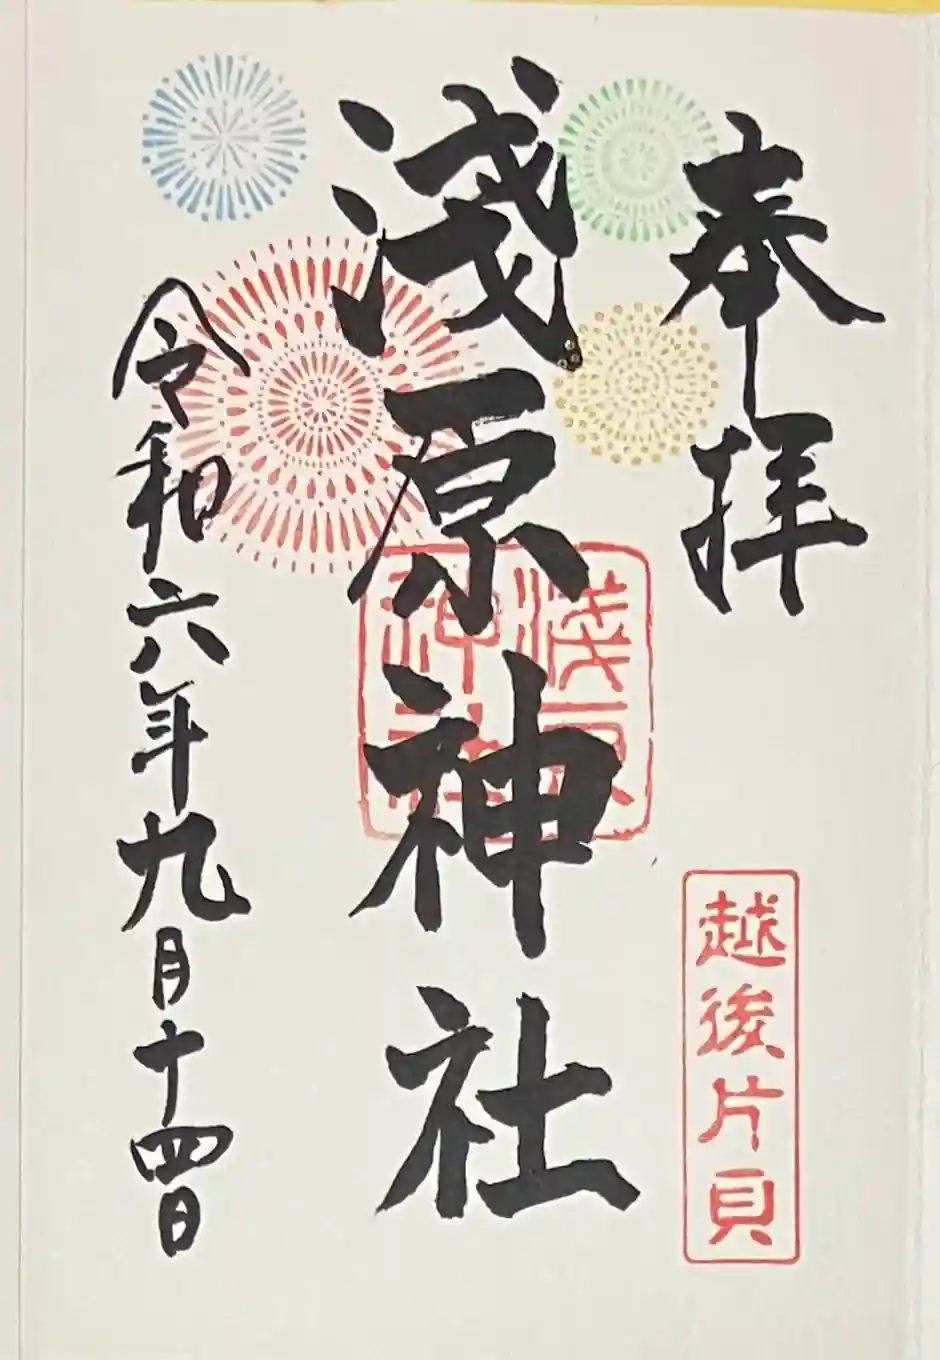 奉拝
越後片貝
淺原神社
淺原神社
令和六年九月十四日